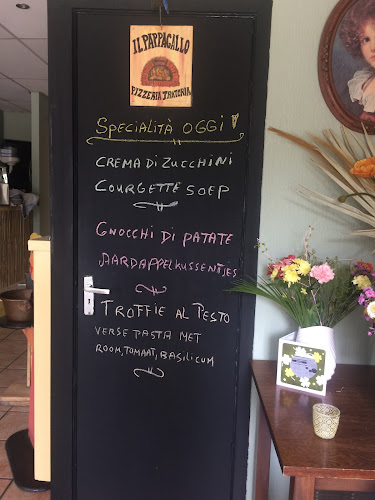 IL PAPPAGALLO
PIZZERIA TRATORIA
SPECIALITÀ OGGI!
CREMA DI ZUCCHINI
COURGETTE SOEP
GNOCCHI DI PATATE
AARDAPPELKUSSENTJES
TROFFIE AL PESTO
VERSE PASTA MET
ROOM, TOMAAT, BASILICUM